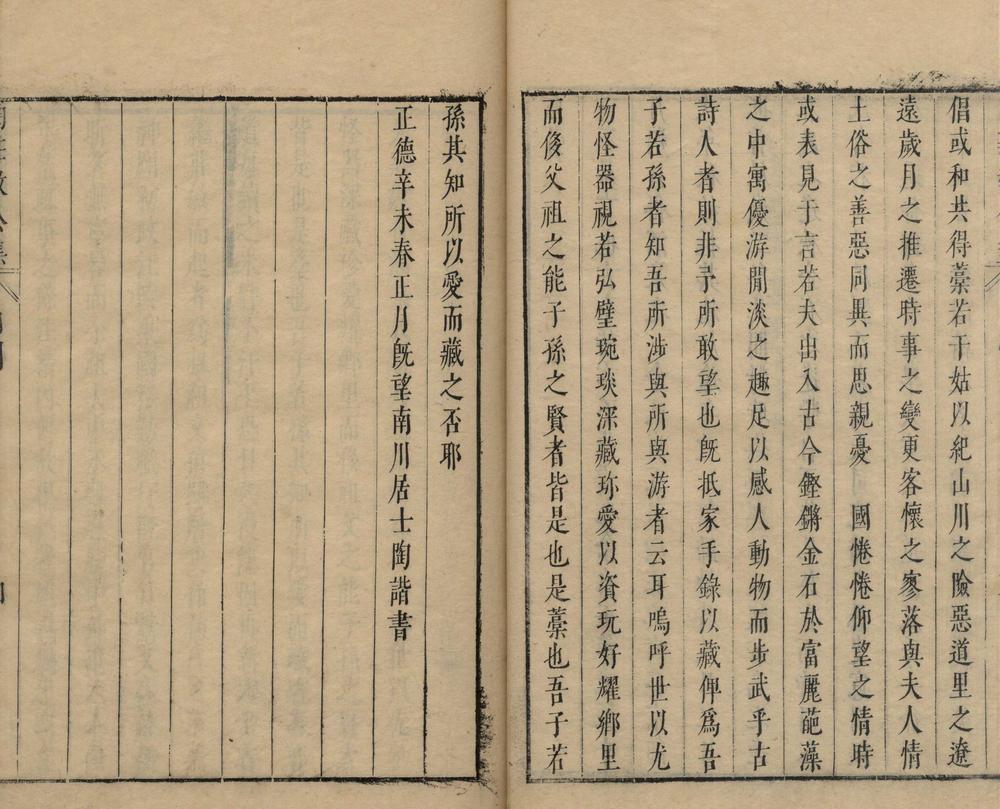 倡或和共得藁若干姑以紀山川之險惡道里之遼
遠歲月之推遷時事之變更客懷之寥落與夫人情
土俗之善惡同異而思親憂　國惓惓仰望之情時
或表見于言若夫出入古今鏗鏘金石於富麗葩藻
之中寓優游閒淡之趣足以感人動物而步武乎古
詩人者則非予所敢望也既抵家手錄以藏俾爲吾
子若孫者知吾所涉與所與游者云耳嗚呼世以尤
物怪器視若弘璧琬琰深藏珎愛以資玩好耀鄉里
而後父祖之能子孫之賢者皆是也是藁也吾子若
孫其知所以愛而藏之否耶
正德辛未春正月既望南川居士陶諧書